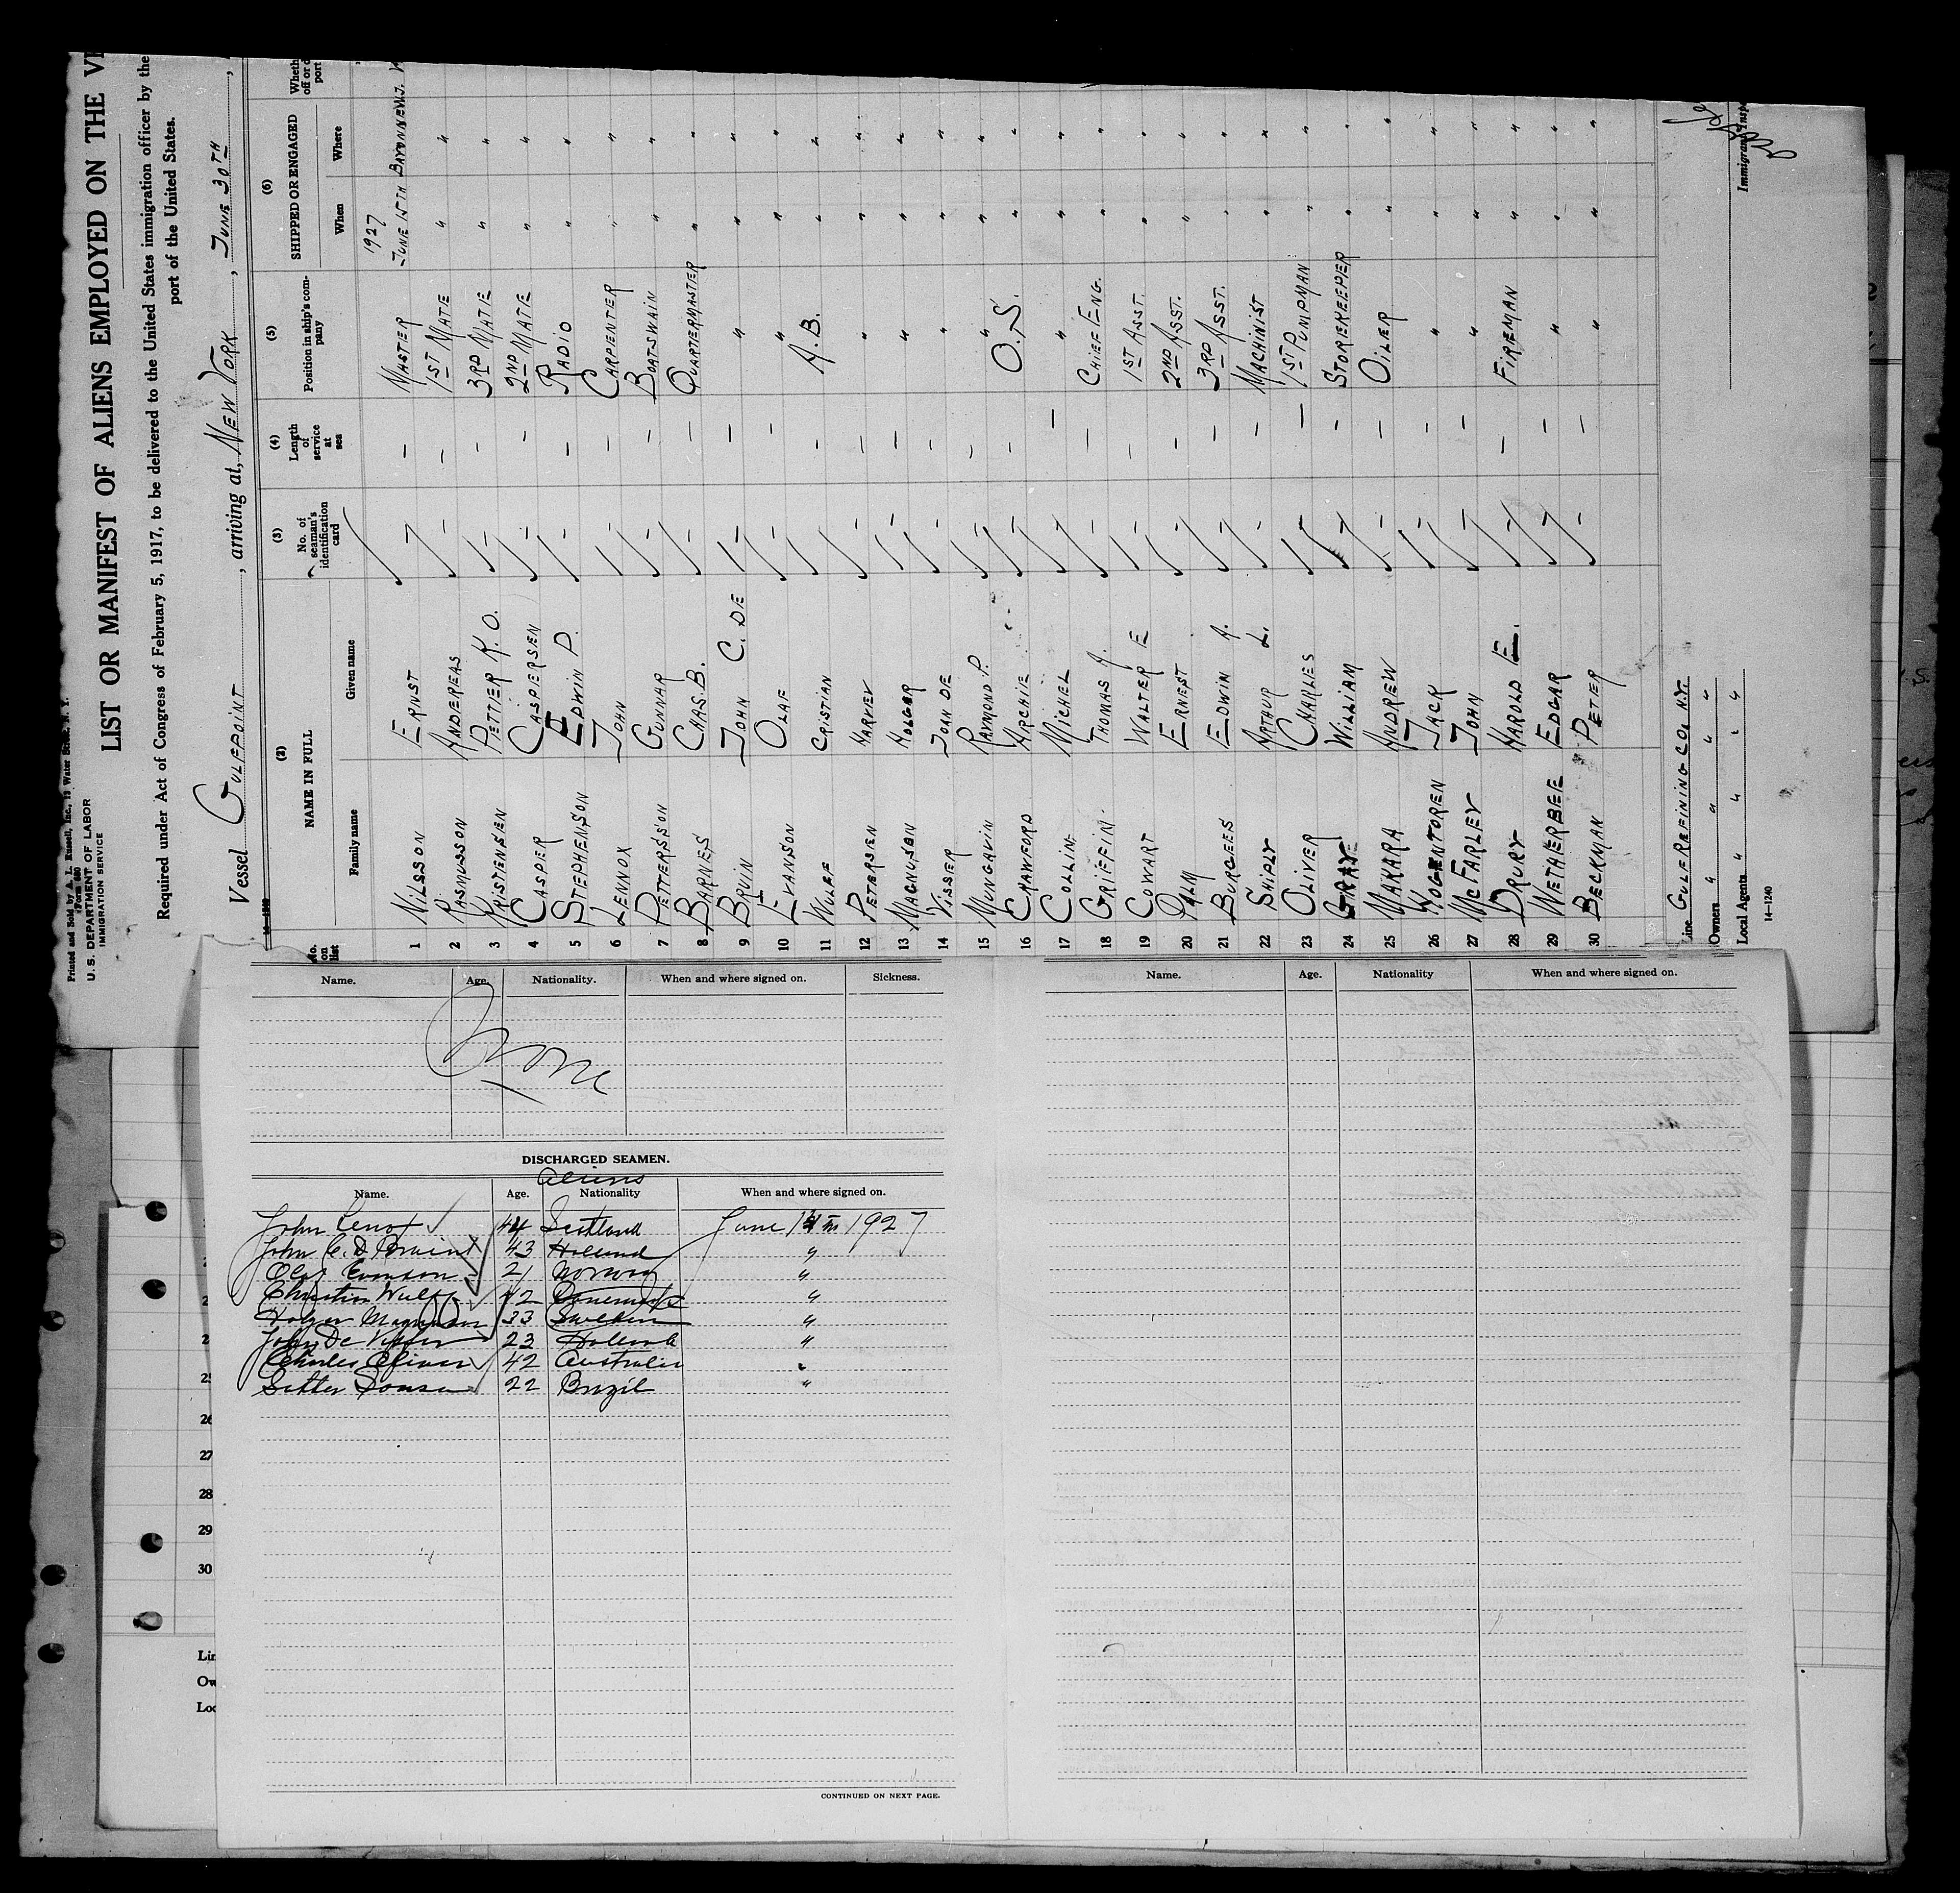 Printed and Sold by A. L. Russell, Inc., 19 Water Street, N. Y.
Form 680
U. S. DEPARTMENT OF LABOR
IMMIGRATION SERVICE
LIST OR MANIFEST OF ALIENS EMPLOYED ON THE
Required under Act of Congress of February 5, 1917, to be delivered to the United States immigration officer by the
port of the United States.
Vessel GULFPOINT, arriving at, NEW YORK, JUNE 30TH,
(2) (3) (4) (5) (6)
No. on list NAME IN FULL No. of seaman's identification card Length of service at sea Position in ship's company SHIPPED OR ENGAGED
Family name Given name When Where
1927
1 NILSSON ERNST — MASTER JUNE 15TH BAYONNE N.J.
2 RASMUSSON ANDEREAS — 1ST MATE " "
3 KRISTENSEN PETTER K. O. — 3RD MATE " "
4 CASPER CASPERSEN — 2ND MATE " "
5 STEPHENSON EDWIN P. — RADIO " "
6 LENNOX JOHN — CARPENTER " "
7 PETTERSSON GUNNAR — BOATSWAIN " "
8 BARNES CHAS. B. — QUARTERMASTER " "
9 BRUIN JOHN C. DE — " " "
10 EVANSON OLAF — " " "
11 WULFF CRISTIAN — A. B. " "
12 PETERSEN HARVEY — " " "
13 MAGNUSON HOLGER — " " "
14 VISSER JOAN DE — " " "
15 MUNGAVIN RAYMOND P. — " " "
16 CRAWFORD ARCHIE — O. S. " "
17 COLLINS MICHEL — " " "
18 GRIFFIN THOMAS A. — CHIEF ENG. " "
19 COWART WALTER E — 1ST ASST. " "
20 PALM ERNEST — 2ND ASST. " "
21 BURGEES EDWIN A. — 3RD ASST. " "
22 SHIPLY ARTHUR L. — MACHINIST " "
23 OLIVER CHARLIES — 1ST PUMPMAN " "
24 GRAVE WILLIAM — STOREKEEPER " "
25 MAKARA ANDREW — OILER " "
26 KOGENTOREN JACK — " " "
27 McFARLEY JOHN — " " "
28 DRURY HAROLD E. — FIREMAN " "
29 WETHERBEE EDGAR — " " "
30 BECKMAN PETER — " " "
Line GULF REFINING CO. N.Y.
Owners " " " "
Local Agents " " " "
14—1240
Immigrant Inspe
Name. Age. Nationality. When and where signed on. Sickness.
None
DISCHARGED SEAMEN.
Aliens
Name. Age. Nationality When and where signed on.
John Lenox 44 Scotland June 1927
John C. D. Bruin 43 Holland "
Olaf Evanson 21 Norway "
Christian Wulff 42 Denemark "
Holger Magnuson 33 Sweden "
John De Visser 23 Holland "
Charles Oliver 42 Australia "
Sousa 22 Brazil "
CONTINUED ON NEXT PAGE.
Name. Age. Nationality When and where signed on.
25
26
27
28
29
30
Lin
Ow
Loc